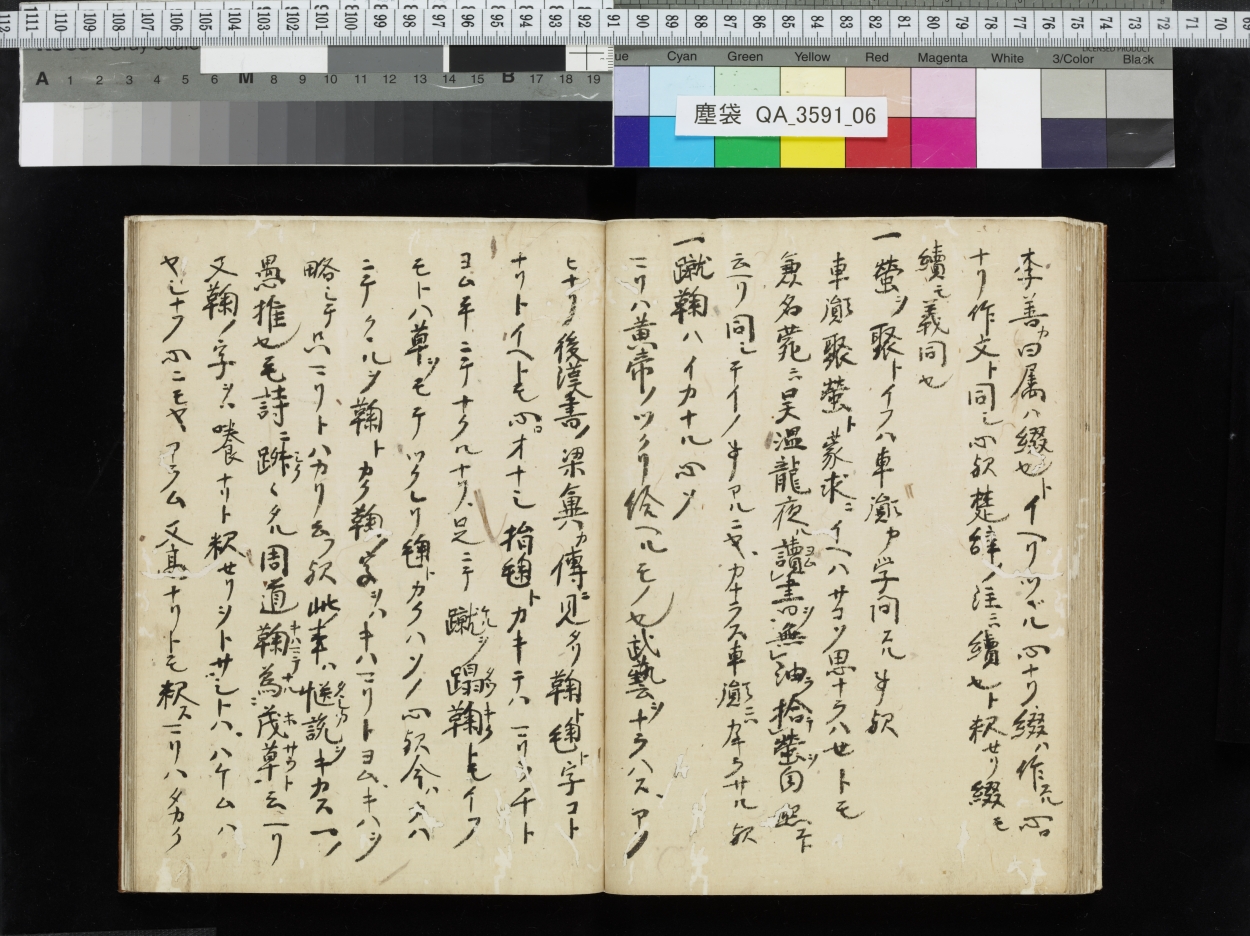 李善カ曰属ハ綴也トイヘリツヾル心ナリ綴ハ作スル心
ナリ作文ト同シ心歟楚辞ノ注ニ續也ト釈セリ綴モ
續モ義同也
一螢ヲ聚トイフハ車胤カ学問スル事歟
車胤聚螢ト蒙求ニイヘハサコソ思ナラハセトモ
温龍夜ル讀書ヲ無油拾螢自照ト
云リ同シテイノ事アルニヤカナラス車胤ニハカキラサル歟
一蹴鞠ハイカナル心ソ
マリハ黄帝ノツクリ給ヘルモノ也武藝ヲナラハス
ヒナリ後漢書ノ梁冀カ傳ニ見タリ鞠ト毱ト字コト
ナリトイヘトモ心オナシ毱トカキテハマリウチト
ヨム手ニテナクルナリ足ニテ蹴ルヲ蹋鞠トモイフ
モトハ草ヲモテツクレリ毱トカクハソノ心歟今ハ
ニテククルヲ鞠トカク鞠ノ字ヲハキハマリトヨムキハヲ
略シテ只マリトハカリ云フ歟此事ハ慥説ヲキカス
愚推也毛詩ニ踧々タル周道鞠為茂草ト云ヘリ
又鞠ノ字ヲハ養ナリト釈セリ
ヤシナフ心ニモヤアラム又高ナリトモ釈スマリハタカク
塵袋 QA_3591_06
Cyan Green Yellow Red Magenta White 3/Color Black
A 1 2 3 4 5 6 M 8 9 10 11 12 13 14 15 B 17 18 19